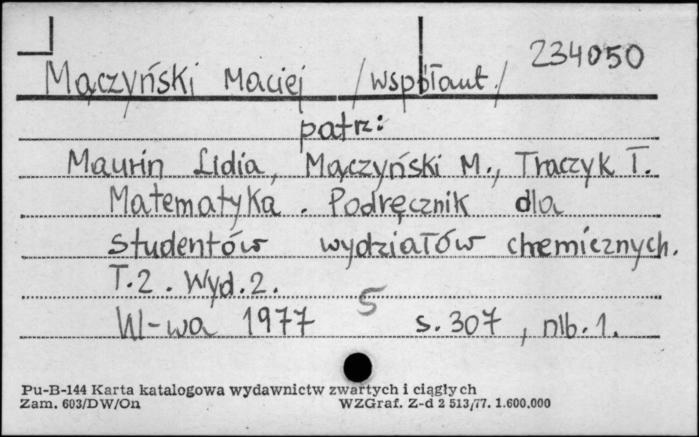 234050
Mączyński Maciej /współaut./
patrz:
Maurin Lidia, Mączyński M., Traczyk T.
Matematyka. Podręcznik dla
studentów wydziałów chemicznych.
T.2. Wyd.2.
W-wa 1977 5 s. 307, nlb. 1.
Pu-B-144 Karta katalogowa wydawnictw zwartych i ciągłych
Zam. 603/DW/On WZGraf. Z-d 2 513/77. 1.600.000